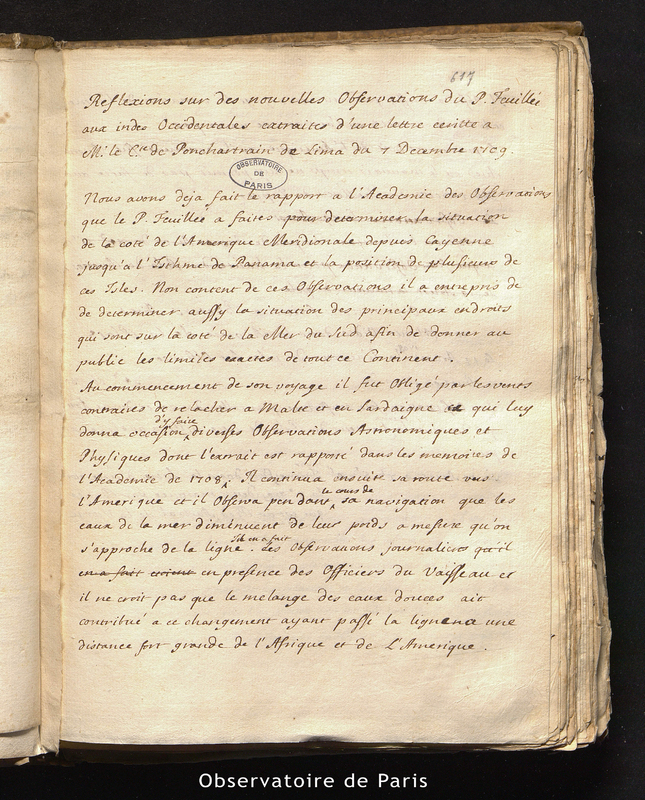 617
Reflexions sur des nouvelles Observations du P. Feuillée
aux indes Occidentales extraites d'une lettre ecritte a
Mr. le Cte. de Ponchartrain de Lima du 7 Decembre 1709.
OBSERVATOIRE
DE
PARIS
Nous avons deja fait le rapport a l'Academie des Observations
que le P. Feuillée a faites pour determiner la situation
de la coté de l'Amerique Meridionale depuis Cayenne
jusqu'a l'Isthme de Panama et la position de plusieurs de
ces Isles. Non content de ces Observations il a entrepris de
de determiner aussy la situation des principaux endroits
qui sont sur la coté de la Mer du Sud afin de donner au
public les limites exactes de tout ce Continent.
Au commencement de son voyage il fut Obligé par les vents
contraires de relacher a Malte et en Sardaigne ce qui luy
donna occasion d'y faire diverses Observations Astronomiques et
Physiques dont l'extrait est rapporté dans les memoires de
l'Academie de 1708. Il continua ensuite sa route vers
l'Amerique et il Observa pendant le cours de sa navigation que les
eaux de la mer diminuent de leur poids a mesure qu'on
s'approche de la ligne. Il en a fait des Observations journalieres qu'il
en a fait en presence des Officiers du Vaisseau et
il ne croit pas que le melange des eaux douces ait
contribué a ce changement ayant passé la ligne a une
distance fort grande de l'Afrique et de L'Amerique.
Observatoire de Paris